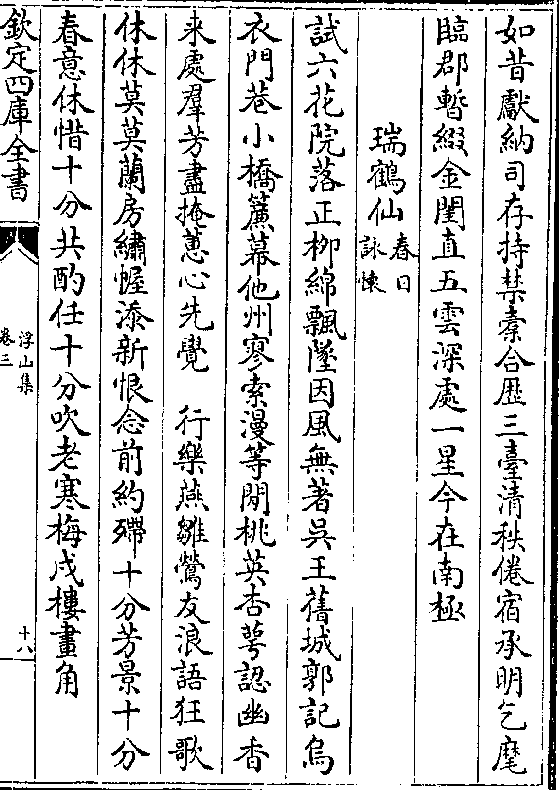 如昔獻納司存持橐合歷三臺清秩倦宿承明乞麾
臨郡暫綴金閨直五雲深處一星今在南極
瑞鶴仙春日詠懐
試六花院落正栁綿飄墜因風無著吳王舊城郭記烏
衣門巷小橋簾幕他州寥索漫等閒桃英杏萼認幽香
来處羣芳盡掩蕙心先覺　行樂燕雛鶯友浪語狂歌
休休莫莫蘭房繡幄添新恨念前約殢十分芳景十分
春意休惜十分共酌任十分吹老寒梅戍樓畫角
欽定四庫全書
浮山集
卷三
十八